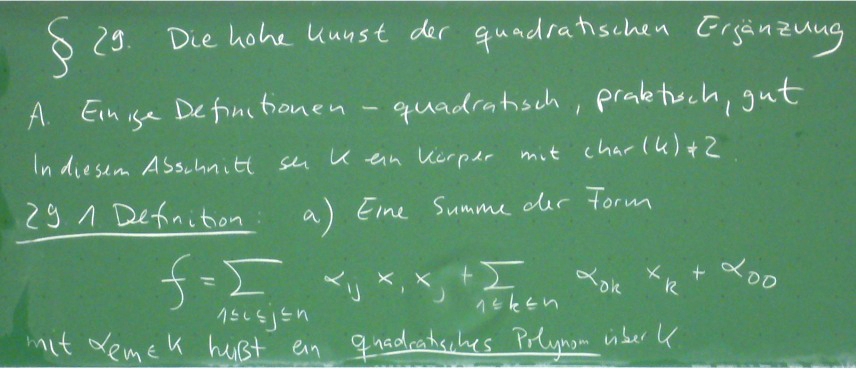 § 29. Die hohe Kunst der quadratischen Ergänzung
A. Einige Definitionen – quadratisch, praktisch, gut
In diesem Abschnitt sei K ein Körper mit char(K) ≠ 2.
29.1 Definition: a) Eine Summe der Form
f = ∑_{1≤i≤j≤n} α_{ij} x_i x_j + ∑_{1≤k≤n} α_{0k} x_k + α_{00}
mit α_{em} ∈ K heißt ein quadratisches Polynom über K.